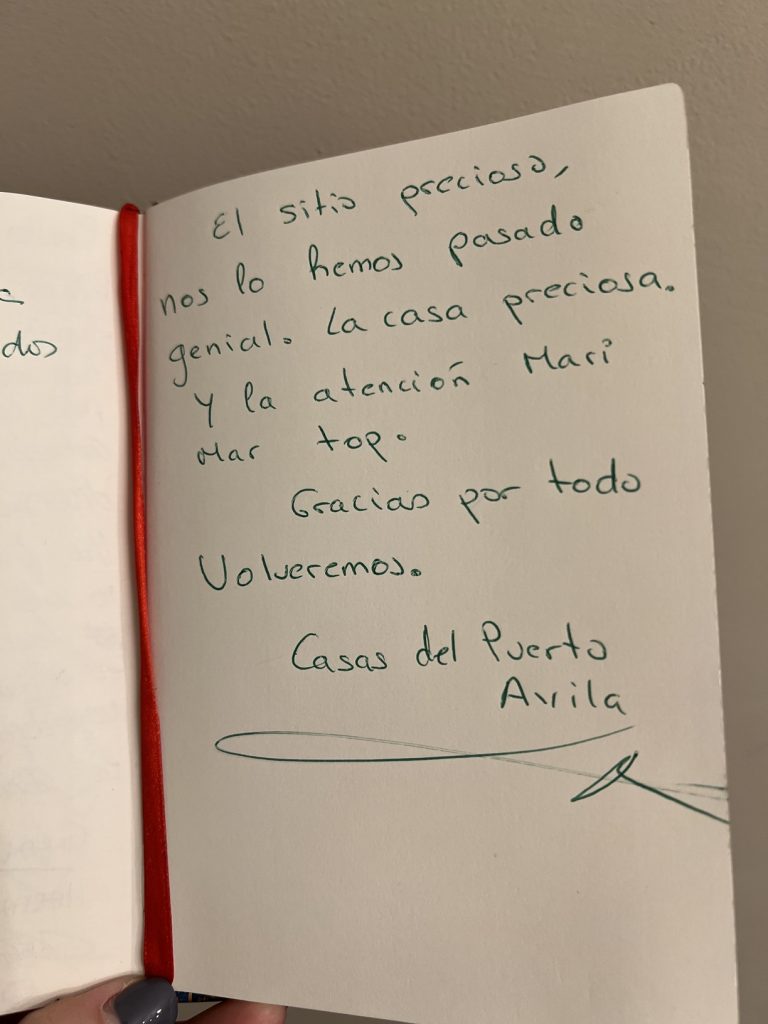 El sitio precioso,
nos lo hemos pasado
genial. La casa preciosa.
Y la atención Mari
Mar top.
Gracias por todo
Volveremos.
Casas del Puerto
Avila
dos